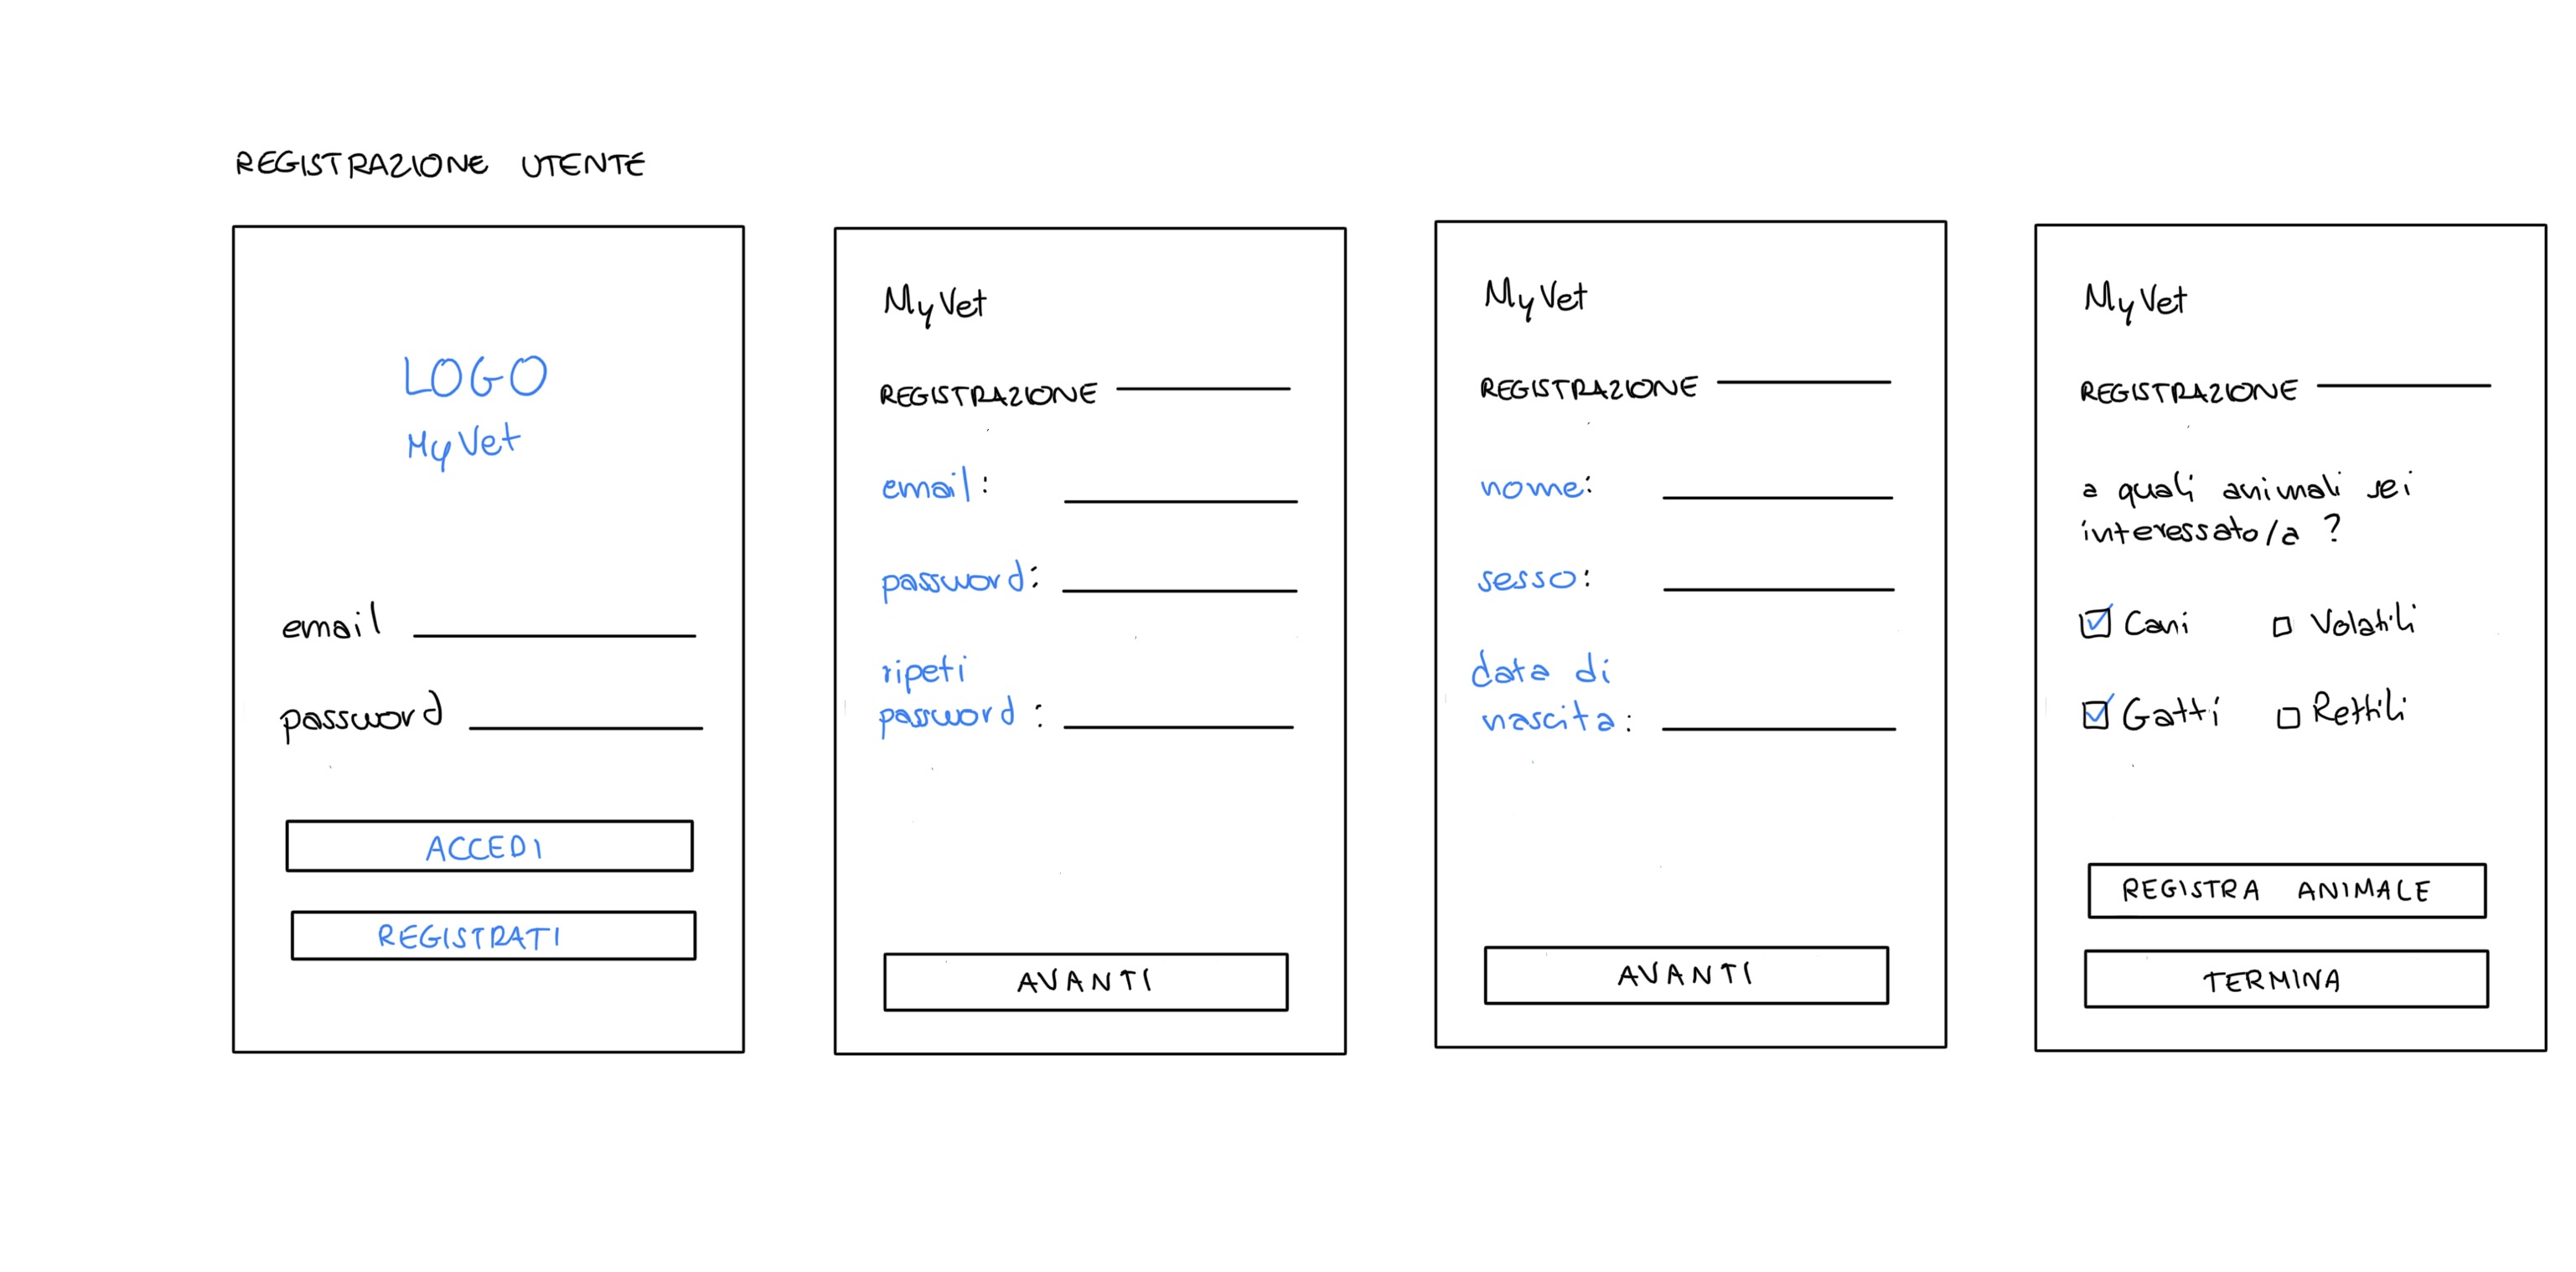 REGISTRAZIONE UTENTE
LOGO
MyVet
email
password
ACCEDI
REGISTRATI
MyVet
REGISTRAZIONE
email:
password:
ripeti
password:
AVANTI
MyVet
REGISTRAZIONE
nome:
sesso:
data di
nascita:
AVANTI
MyVet
REGISTRAZIONE
a quali animali sei
interessato/a ?
Cani Volatili
Gatti Rettili
REGISTRA ANIMALE
TERMINA